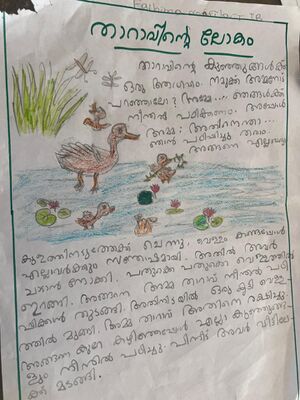 താറാവിന്റെ ലോകം
താറാവിന്റെ കുഞ്ഞുങ്ങൾക്ക്
ഒരു ആഗ്രഹം. നമുക്ക് അമ്മയോട്
പറഞ്ഞാലോ? അമ്മേ... ഞങ്ങൾക്ക്
നീന്തൽ പഠിക്കണം. അപ്പോൾ
അമ്മ: അതിനെന്താ...
ഞാൻ പഠിപ്പിച്ചു തരാം.
അങ്ങനെ എല്ലാവരും
കുളത്തിനടുത്തേക്ക് ചെന്നു. വെള്ളം കണ്ടപ്പോൾ
എല്ലാവർക്കും സന്തോഷമായി. അതിൽ അവർ
ചാടാൻ നോക്കി. പതുക്കെ പതുക്കെ വെള്ളത്തിൽ
ഇറങ്ങി. അങ്ങനെ അമ്മ താറാവ് നീന്തൽ പഠി
പ്പിക്കാൻ തുടങ്ങി. അതിനിടയിൽ ഒരു കുട്ടി വെള്ള
ത്തിൽ മുങ്ങി. അമ്മ താറാവ് അതിനെ രക്ഷിച്ചു.
അങ്ങനെ കുറേ കഴിഞ്ഞപ്പോൾ എല്ലാ കുഞ്ഞുങ്ങ
ളും നീന്തൽ പഠിച്ചു. പിന്നീട് അവർ വീട്ടിലേ
ക്ക് മടങ്ങി.